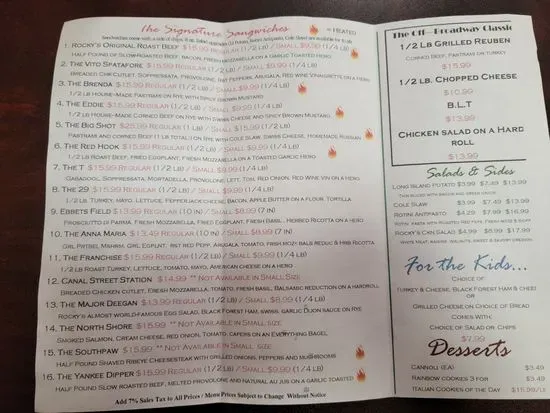 The Signature Sangwiches
= HEATED
1. ROCKY'S ORIGINAL ROAST BEEF $15.99 REGULAR (1/2 LB) / SMALL $9.99 (1/4 LB)
HALF POUND OF SLOW ROASTED BEEF, BACON, FRESH MOZZARELLA ON A GARLIC TOASTED HERO
2. THE VITO SPATAFORE $15.99 REGULAR (1/2 LB) / SMALL $9.99 (1/4 LB)
BREADED CHIX CUTLET, SOPPRESSATA, PROVOLONE, HOT PEPPERS, ARUGULA, RED WINE VINAIGRETTE ON A HERO
3. THE BRENDA $15.99 REGULAR (1/2 LB) / SMALL $9.99 (1/4 LB)
1/2 LB HOUSE-MADE PASTRAMI ON RYE WITH SPICY BROWN MUSTARD
4. THE EDDIE $15.99 REGULAR (1/2 LB) / SMALL $9.99 (1/4 LB)
1/2 LB HOUSE-MADE CORNED BEEF ON RYE WITH SWISS CHEESE AND SPICY BROWN MUSTARD
5. THE BIG SHOT $25.99 REGULAR (1 LB) / SMALL $15.99 (1/2 LB)
PASTRAMI AND CORNED BEEF (1 LB TOTAL) ON RYE WITH COLE SLAW, SWISS CHEESE, HOMEMADE RUSSIAN
6. THE RED HOOK $15.99 REGULAR (1/2 LB) / SMALL $9.99 (1/4 LB)
1/2 LB ROAST BEEF, FRIED EGGPLANT, FRESH MOZZARELLA ON A TOASTED GARLIC HERO
7. THE T $15.99 REGULAR (1/2 LB) / SMALL $9.99 (1/4 LB)
GABAGOOL, SOPPRESSATA, MORTADELLA, PROVOLONE, LETT, TOM, RED ONION, RED WINE VIN ON A HERO
8. THE 29 $15.99 REGULAR (1/2 LB) / SMALL $9.99 (1/4 LB)
1/2 LB TURKEY, MAYO, LETTUCE, PEPPERJACK CHEESE, BACON, APPLE BUTTER ON A FLOUR TORTILLA
9. EBBETS FIELD $13.99 REGULAR (10 IN) / SMALL $8.99 (7 IN)
PROSCIUTTO DI PARMA, FRESH MOZZARELLA, FRIED EGGPLANT, FRESH BASIL, HERBED RICOTTA ON A HERO
10. THE ANNA MARIA $13.49 REGULAR (10 IN) / SMALL $8.99 (7 IN)
GRL PRTBEL MSHRM, GRL EGPLNT, RST RED PEPP, ARUGULA, TOMATO, FRSH MOZZ, BALS REDUC & HRB RICOTTA
11. THE FRANCHISE $15.99 REGULAR (1/2 LB) / SMALL $9.99 (1/4 LB)
1/2 LB ROAST TURKEY, LETTUCE, TOMATO, MAYO, AMERICAN CHEESE ON A HERO
12. CANAL STREET STATION $14.99 ** NOT AVAILABLE IN SMALL SIZE
BREADED CHICKEN CUTLET, FRESH MOZZARELLA, TOMATO, FRESH BASIL, BALSAMIC REDUCTION ON A HARDROLL
13. THE MAJOR DEEGAN $13.99 REGULAR (1/2 LB) / SMALL $8.99 (1/4 LB)
ROCKY'S ALMOST WORLD-FAMOUS EGG SALAD, BLACK FOREST HAM, SWISS, GARLIC DIJON SAUCE ON RYE
14. THE NORTH SHORE $15.99 ** NOT AVAILABLE IN SMALL SIZE
SMOKED SALMON, CREAM CHEESE, RED ONION, TOMATO, CAPERS ON AN EVERYTHING BAGEL
15. THE SOUTHPAW $15.99 ** NOT AVAILABLE IN SMALL SIZE
HALF POUND SHAVED RIBEYE CHEESESTEAK WITH GRILLED ONIONS, PEPPERS AND MUSHROOMS
16. THE YANKEE DIPPER $15.99 REGULAR (1/2 LB) / SMALL $9.99 (1/4 LB)
HALF POUND SLOW ROASTED BEEF, MELTED PROVOLONE AND NATURAL AU JUS ON A GARLIC TOASTED
Add 7% Sales Tax to All Prices / Menu Prices Subject to Change Without Notice
The Off-Broadway Classic
1/2 LB GRILLED REUBEN
CORNED BEEF, PASTRAMI OR TURKEY
$15.99
1/2 LB. CHOPPED CHEESE
$10.99
B.L.T
$13.99
CHICKEN SALAD ON A HARD
ROLL
$13.99
Salads & Sides
LONG ISLAND POTATO $3.99 $7.49 $13.99
COLE SLAW $3.99 $7.49 $13.99
ROTINI ANTIPASTO $4.29 $7.99 $16.99
ROCKY'S CKN SALAD $4.99 $8.99 $17.99
For the Kids...
CHOICE OF
TURKEY & CHEESE, BLACK FOREST HAM & CHEESE
OR
GRILLED CHEESE ON CHOICE OF BREAD
COMES WITH:
CHOICE OF SALAD OR CHIPS
$7.99
Desserts
CANNOLI (EA) $3.49
RAINBOW COOKIES 3 FOR $3.49
ITALIAN COOKIES OF THE DAY $15.99/LB